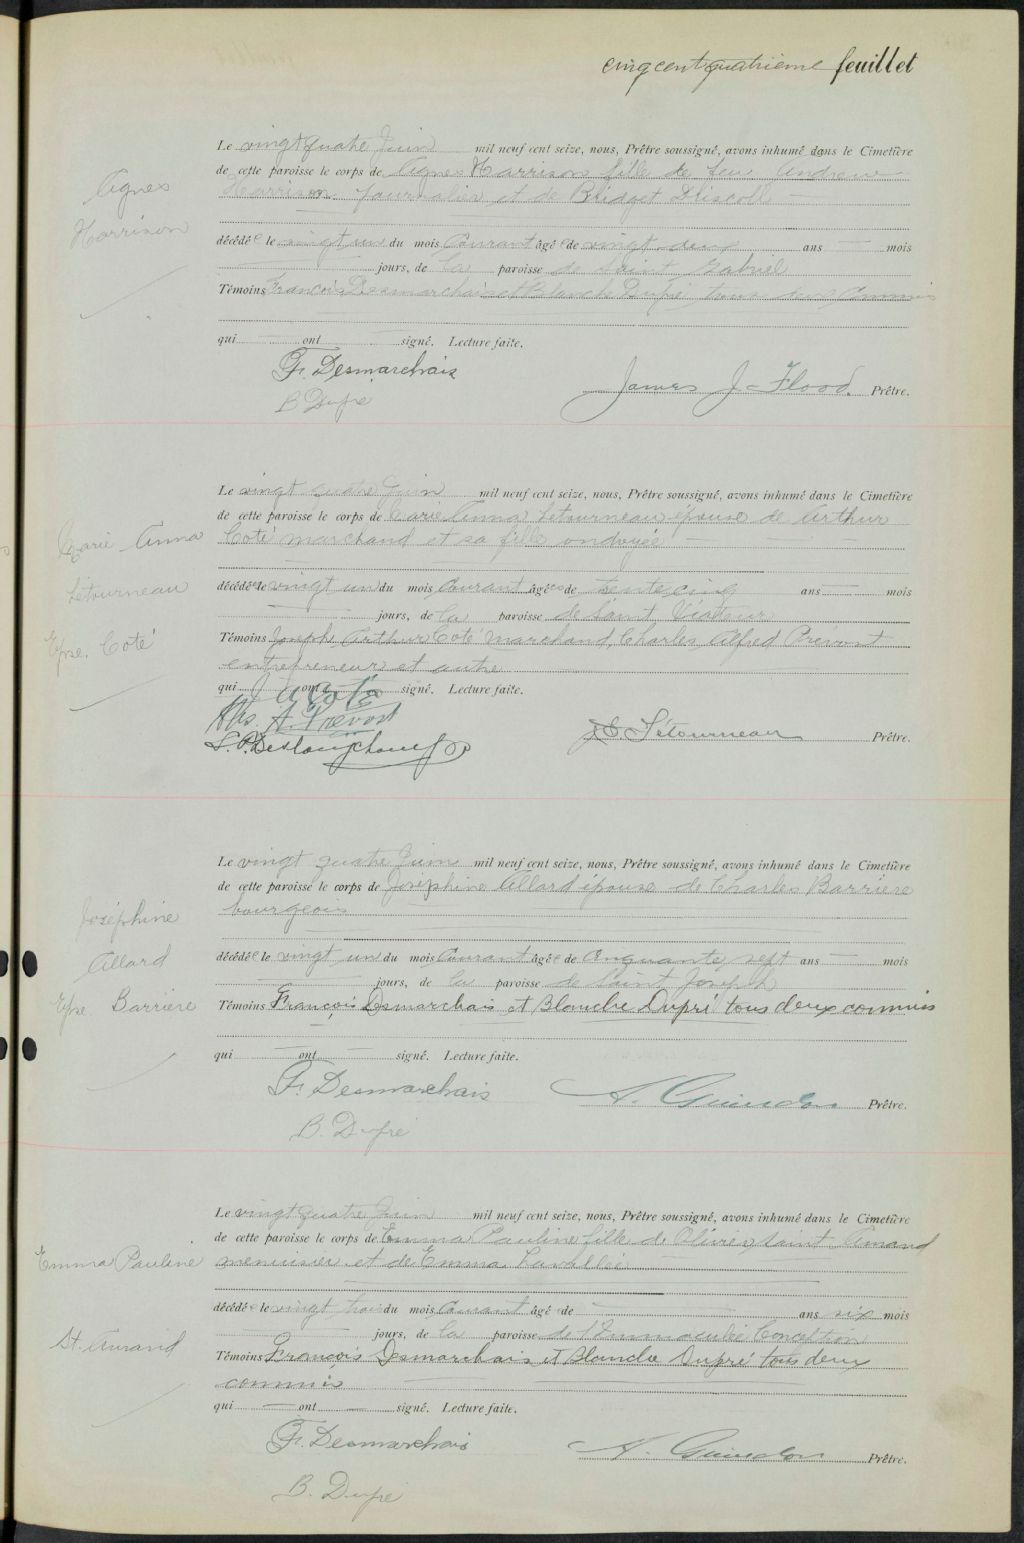 cinq cent quatrième feuillet
Agnes
Harrison
Le vingt quatre Juin mil neuf cent seize, nous, Prêtre soussigné, avons inhumé dans le Cimetière
de cette paroisse le corps de Agnes Harrison fille de feu Andrew
Harrison journalier et de Bridget Driscoll
décédée le vingt un du mois courant âgée de vingt deux ans mois
jours, de la paroisse de Saint Gabriel
Témoins François Desmarchais et Blanche Dupré, tous deux commis
qui ont signé. Lecture faite.
F. Desmarchais
B Dupré
James J. Flood. Prêtre.
Marie Anna
Létourneau
Epse. Coté
Le vingt quatre Juin mil neuf cent seize, nous, Prêtre soussigné, avons inhumé dans le Cimetière
de cette paroisse le corps de Marie Anna Letourneau épouse de Arthur
Coté marchand et sa fille ondoyée
décédées le vingt un du mois courant âgées de trente cinq ans mois
jours, de la paroisse de Saint Viateur
Témoins Joseph Arthur Coté marchand, Charles Alfred Prévost
entrepreneur et autre
qui ont signé. Lecture faite.
J A Coté
Chs. A. Prevost
L. P. Deslongchamps
J. E. Létourneau Prêtre.
Joséphine
Allard
Epse Barrière
Le vingt quatre Juin mil neuf cent seize, nous, Prêtre soussigné, avons inhumé dans le Cimetière
de cette paroisse le corps de Josephine Allard épouse de Charles Barriere
bourgeois
décédée le vingt un du mois courant âgée de cinquante sept ans mois
jours, de la paroisse de Saint Joseph
Témoins François Desmarchais et Blanche Dupré tous deux commis
qui ont signé. Lecture faite.
F. Desmarchais
B. Dupré
A. Guindon Prêtre.
Emma Pauline
St. Amand
Le vingt quatre Juin mil neuf cent seize, nous, Prêtre soussigné, avons inhumé dans le Cimetière
de cette paroisse le corps de Emma Pauline fille de Olivier Saint Amand
menuisier et de Emma Lavallée
décédée le vingt trois du mois courant âgée de ans six mois
jours, de la paroisse de l'Immaculée Conception
Témoins François Desmarchais et Blanche Dupré tous deux
commis
qui ont signé. Lecture faite.
F. Desmarchais
B. Dupré
A. Guindon Prêtre.